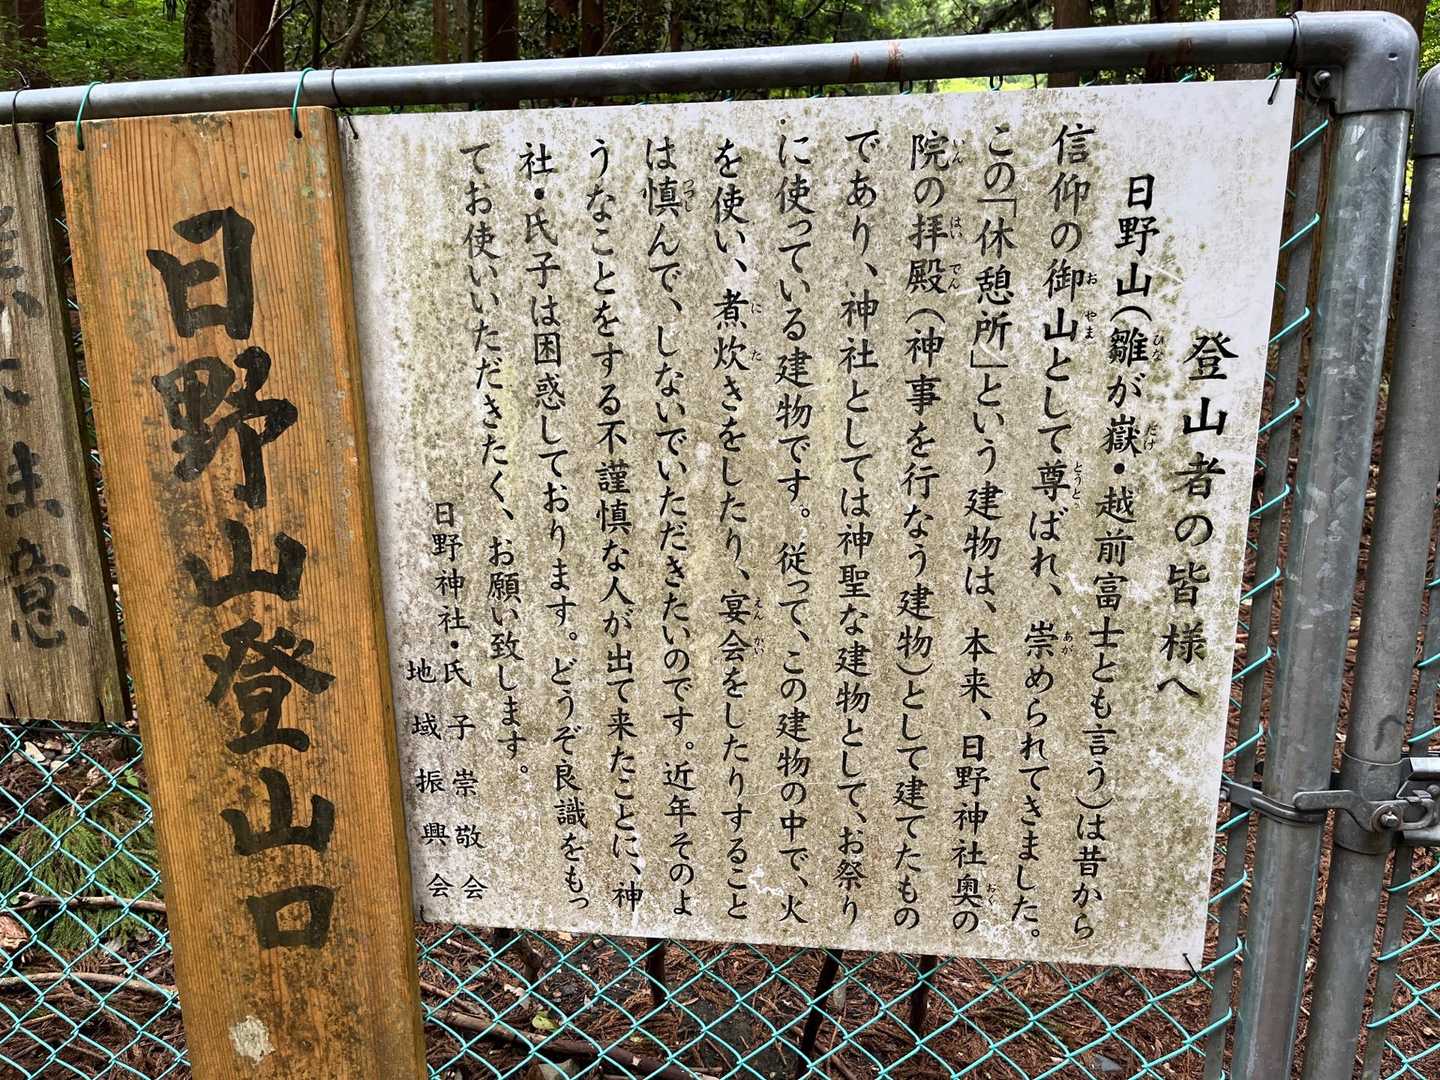 登山者の皆様へ
日野山(雛が嶽・越前富士とも言う)は昔から
信仰の御山として尊ばれ、崇められてきました。
この「休憩所」という建物は、本来、日野神社奥の
院の拝殿(神事を行なう建物)として建てたもの
であり、神社としては神聖な建物として、お祭り
に使っている建物です。従って、この建物の中で、火
を使い、煮炊きをしたり、宴会をしたりすること
は慎んで、しないでいただきたいのです。近年そのよ
うなことをする不謹慎な人が出て来たことに、神
社・氏子は困惑しております。どうぞ良識をもっ
てお使いいただきたく、お願い致します。
日野神社・氏子崇敬会
地域振興会
日野山登山口
注意